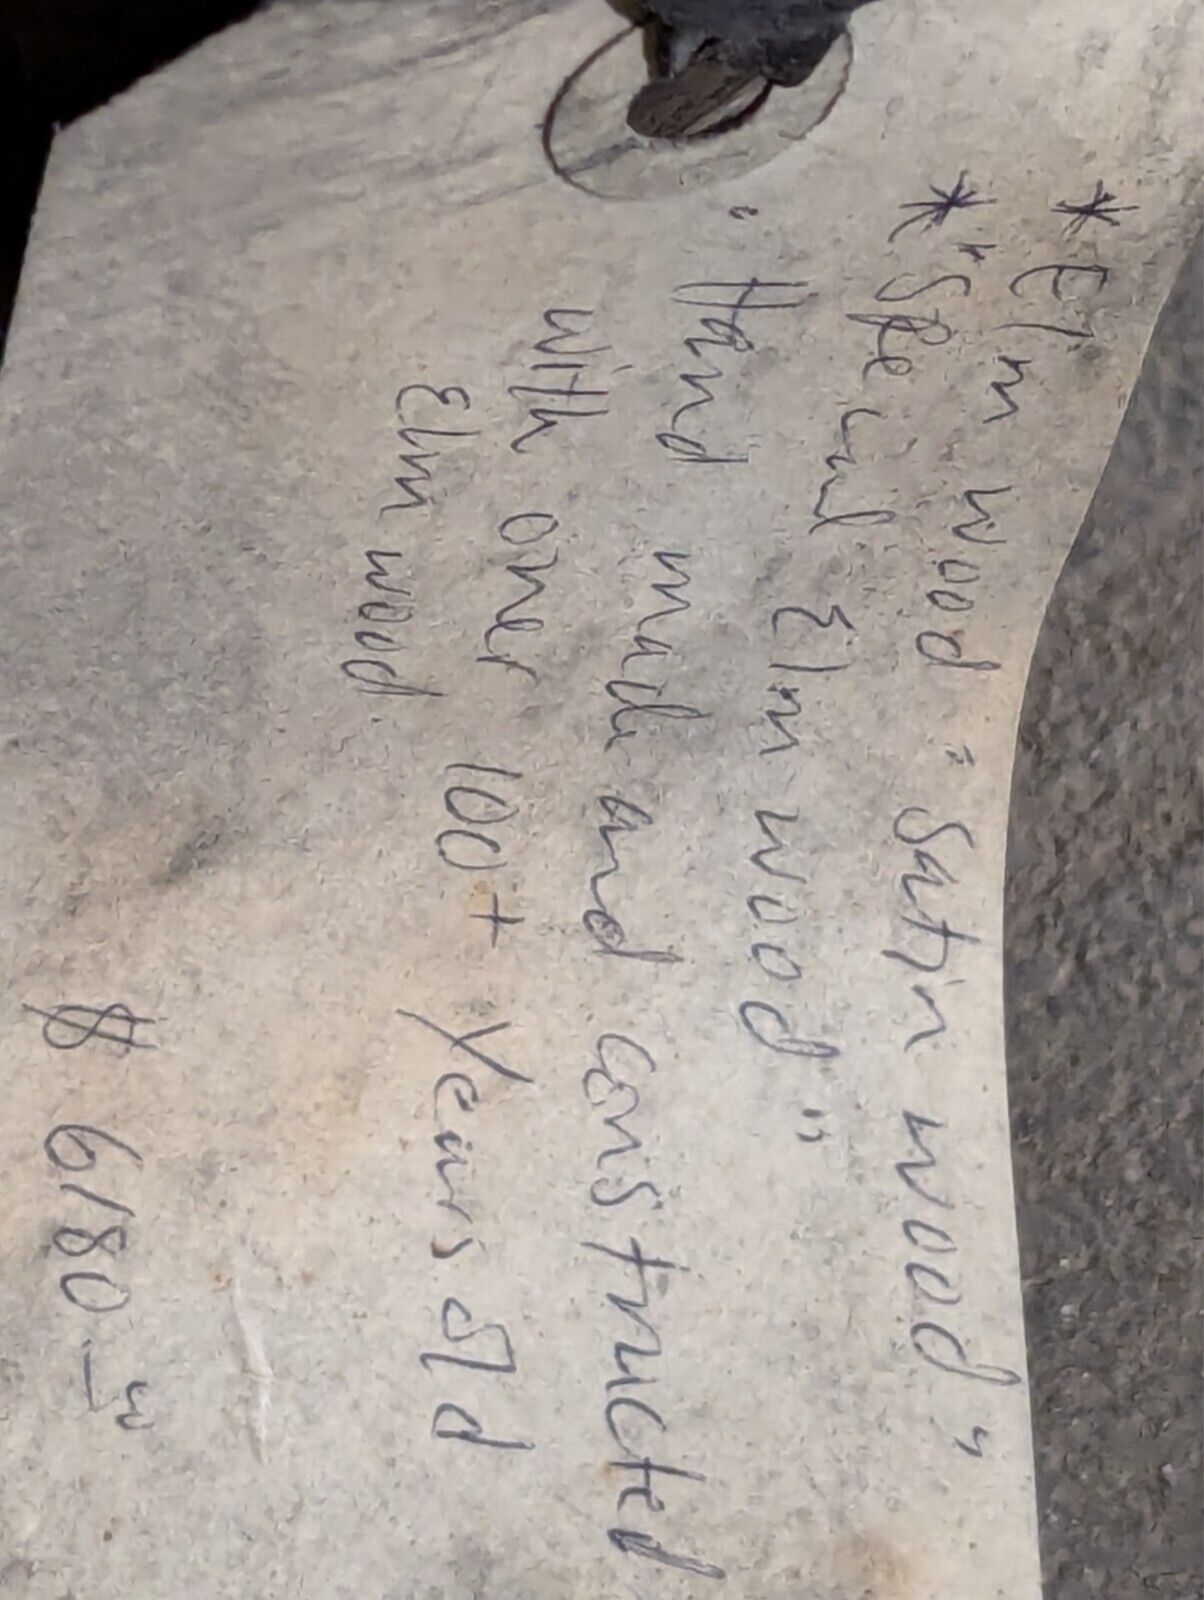 * Elm wood "Satin wood"
* "Special Elm wood"
"Hand made and constructed
with over 100+ Years old
Elm wood.
$ 6180-